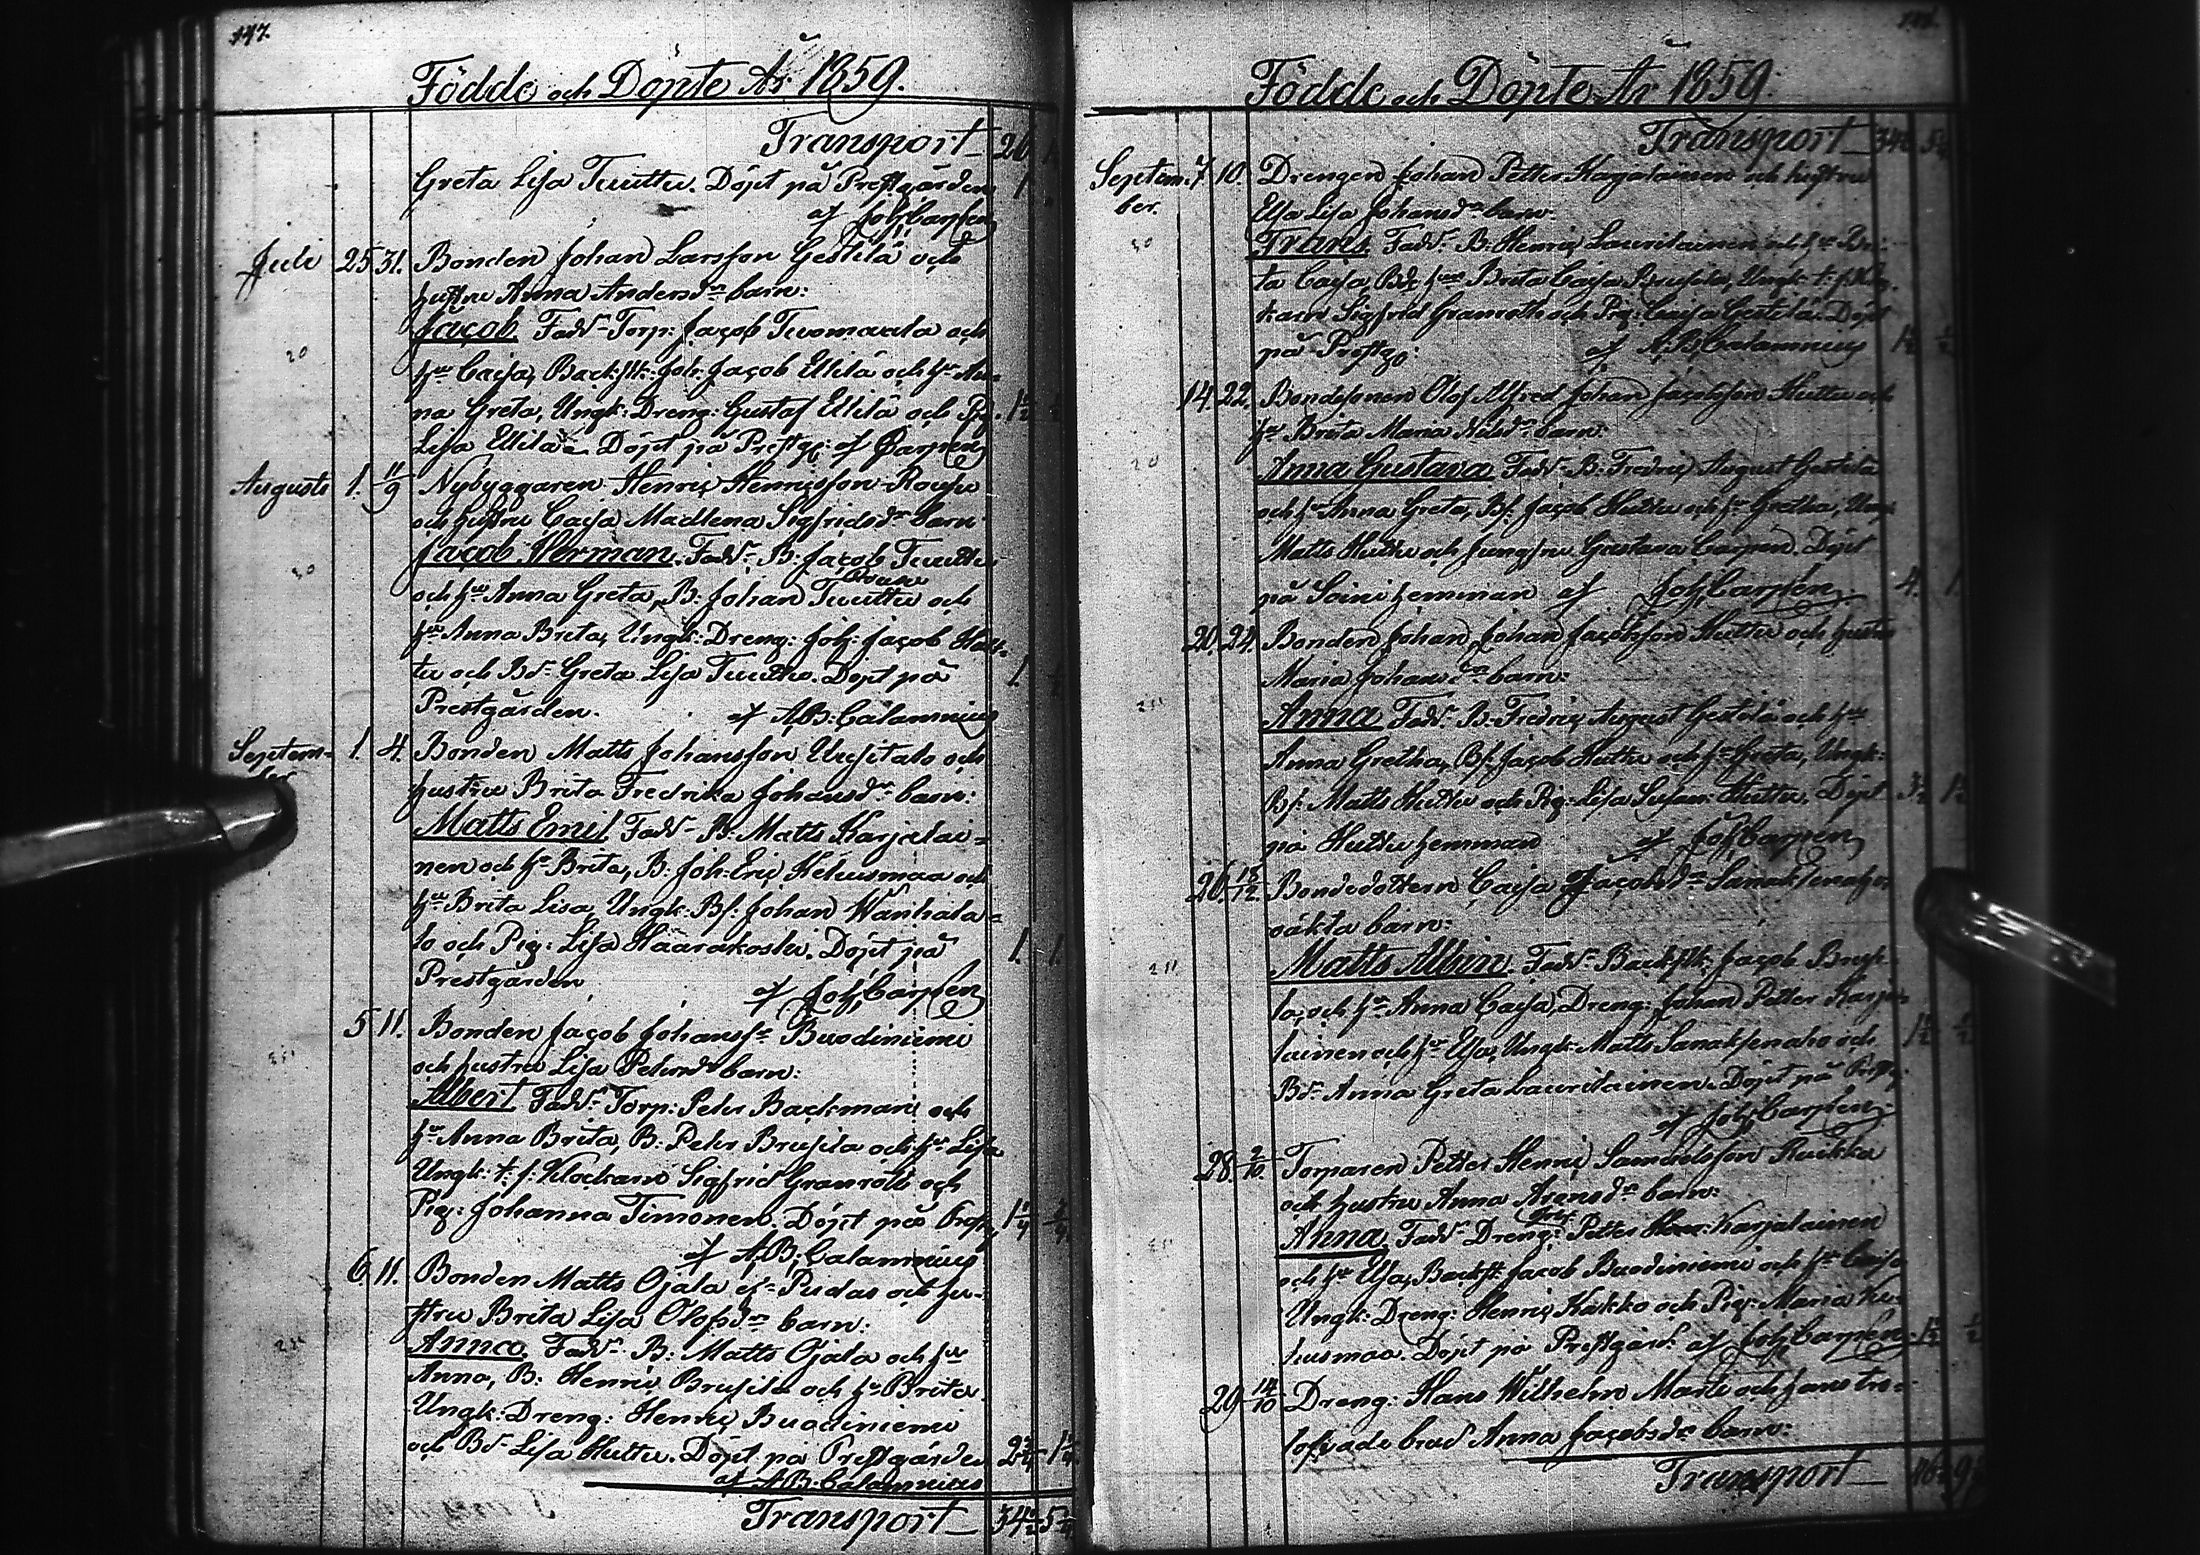 147.
Födde och Döpte År 1859.
Transport 20
Greta Lisa Tuuttu. Döpt på Prestgården 1
af Joh Carpen
Juli 25 31. Bonden Johan Larsson Gestilä och
hustru Anna Andersdr barn:
20 Jacob. Fadd. Torp: Jacob Tuomaala och
hu Caisa, Backstk: Joh: Jacob Ellilä och hu An-
na Greta, Ungk: Dreng: Gustaf Ellilä och Pig. 1½
Lisa Ellilä. Döpt på Prestg: af Carpen
Augusti 1. 11/9 Nybyggaren Henric Henricsson Rousu
och hustru Caisa Madlena Sigfridsdr barn
Jacob Herman. Fadd. B: Jacob Tuuttu
och hu Anna Greta, B: Johan Tuuttu och
hu Anna Brita, Ungk: Dreng: Joh: Jacob Hut-
tu och Bd. Greta Lisa Tuuttu. Döpt på 1.
Prestgården. af AB: Calamnius
Septem-ber 1. 4. Bonden Matts Johansson Uusitalo och
hustru Brita Fredrika Johansdr barn:
Matts Emil Fadd. B: Matts Karjalai-
nen och hu Brita, B: Joh: Eric Keliusmaa och
hu Brita Lisa, Ungk: Bs: Johan Wanhata-
lo och Pig: Lisa Haarakoski. Döpt på 1. 1.
Prestgården
af Joh Carpen
5 11. Bonden Jacob Johanss: Buodiniemi
och hustru Lisa Petersdr barn:
Albert Fadd. Torp: Peter Backman och
hu Anna Brita, B: Peter Brusila och hu Lisa
Ungk: t. f. Klockarn Sigfrid Granroth och
Pig: Johanna Timonen. Döpt på Prestg
af AB: Calamnius
6. 11. Bonden Matts Ojala Pudas och hu-
stru Brita Lisa Olofsdr barn:
Anna. Fadd. B: Matts Ojala och hu
Anna, B: Henric Brusila och hu Brita
Ungk: Dreng: Henric Buodiniemi
och Bd. Lisa Huttu. Döpt på Prestgården
af AB: Calamnius
Transport 34½
Födde och Döpte År 1859.
Transport 34½
Septem-ber. 7. 10. Drengen Johan Petter Karjalainen och hustru
Elsa Lisa Johansdr barn:
Frans. Fadd. B: Henric Laurilainen och hu Bri-
ta Caisa, hu Brita Caisa Brusila, Ungk: t. f. Kloc-
karn Sigfrid Granroth och Pig: Caisa Gestilä. Döpt
på Prestg: af AB: Calamnius 1½
14. 22. Bondesonen Olof Alfred Johan Jacobsson Huttu och
hu Brita Maria Nilsdr barn:
Anna Gustava Fadd. B: Fredric August Gestilä
och hu Anna Greta, Bs: Jacob Huttu och hu Gretha, Ung:
Matts Huttu och Jungfru Gustava Carpen. Döpt
på Soini hemman af Joh Carpen 4. 1
20. 24. Bonden Johan Johan Jacobsson Huttu och hustru
Maria Johansdr barn:
Anna Fadd. B: Fredric August Gestilä och hu
Anna Gretha, Bs: Jacob Huttu och hu Greta, Ungk:
Bs: Matts Huttu och Pig: Lisa Susan: Huttu. Döpt 3½
på Huttu hemman af Joh Carpen
26. Bondedottern Caisa Jacobsdr Sanaksenaho
oäkta barn:
Matts Albin. Fadd. Backstk: Jacob Brusi-
la, och hu Anna Caisa, Dreng: Johan Petter Karja-
lainen och hu Elsa, Ungk: Matts Sanaksenaho och 1½ ½
Bd. Anna Greta Laurilainen. Döpt på Prestg:
af Joh Carpen
28. 2/10. Torparen Petter Henric Samuelsson Ruikka
och hustru Anna Aronsdr barn:
Anna, Fadd. Dreng: Petter Karjalainen
och hu Elsa, Backst: Jacob Buodiniemi och hu Caisa
Ungk: Dreng: Henric Kukko och Pig: Maria Ke-
liusmaa. Döpt på Prestgård: af Joh Carpen 1½ ½
29 14/10 Dreng: Hans Wilhelm Marti och hans tro-
lofvade brud Anna Jacobsdr barn:
Transport